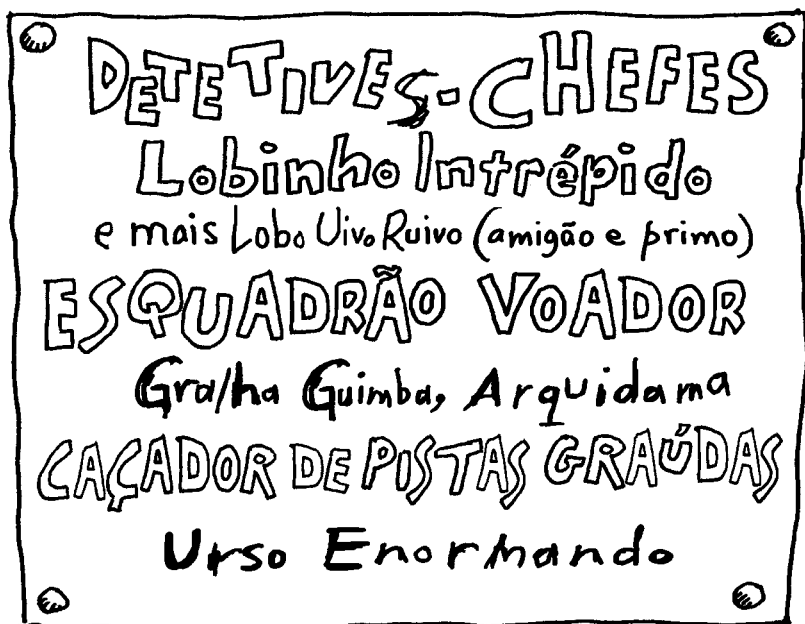 DETETIVES-CHEFES
Lobinho Intrépido
e mais Lobo Uivo Ruivo (amigão e primo)
ESQUADRÃO VOADOR
Gralha Guimba, Arquidama
CAÇADOR DE PISTAS GRAÚDAS
Urso Enormando